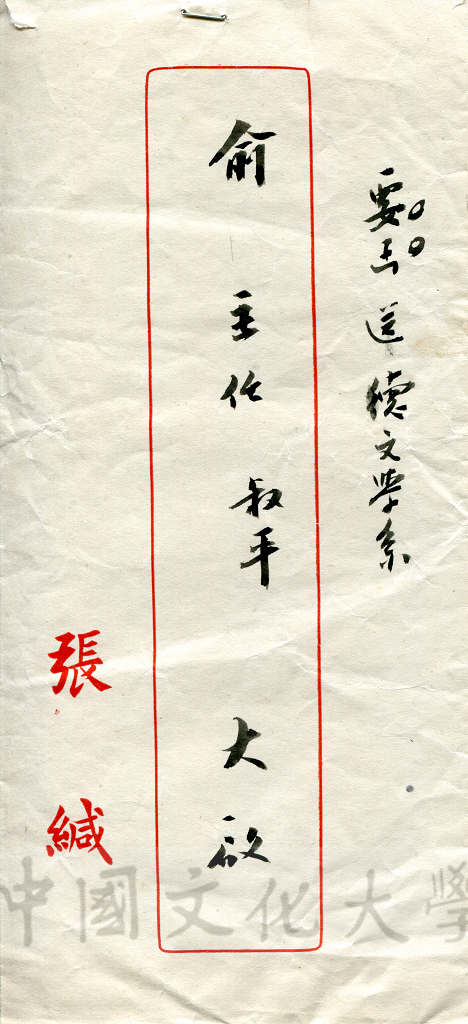 要函 送 德文學系
俞 主任 叔平 大啟
張 緘
中國文化大學